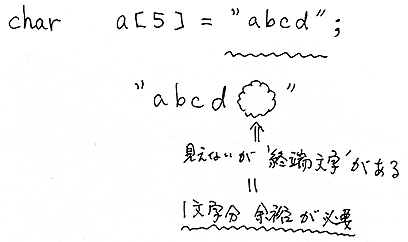 char a[5] = "abcd";
"abcd "
見えないが '終端文字' がある
=
1文字分 余裕が必要